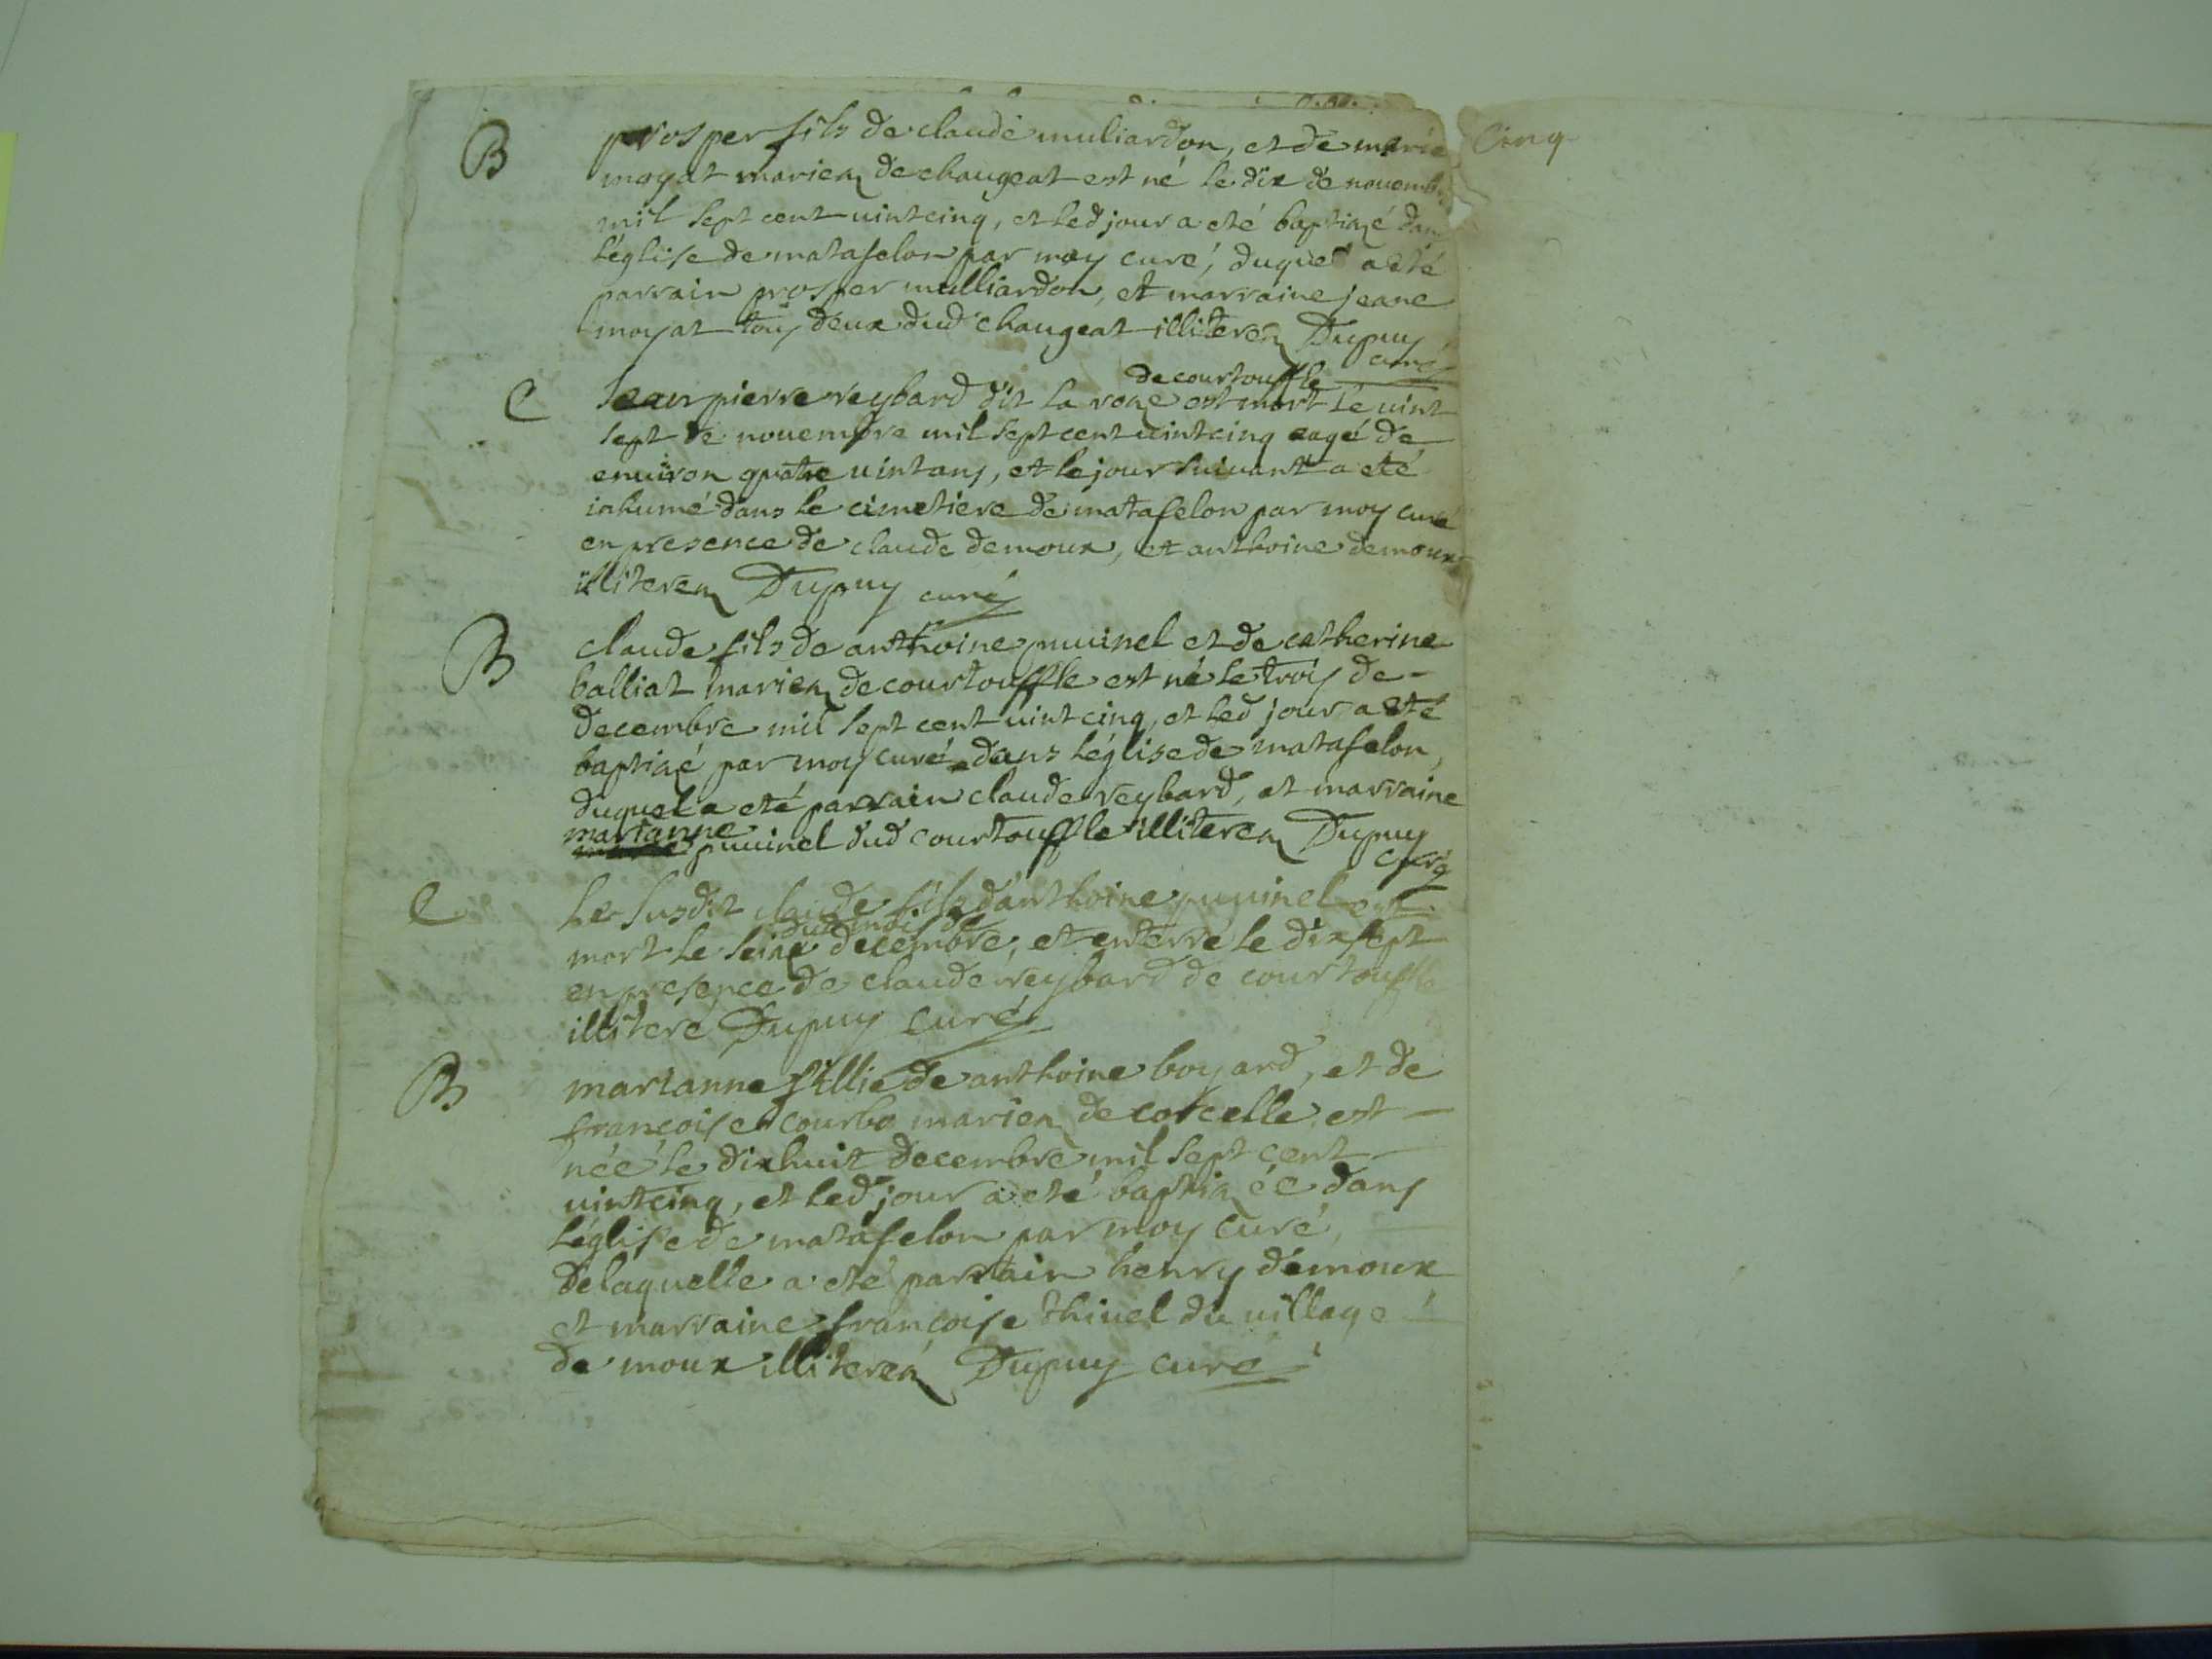 B prosper fils de claude muliardon, et de marie
moyat mariez de chaugeat est né le dix de novemb
mil sept cent vint cinq, et led jour a eté baptizé dans
l'église de matafelon par moy curé, duquel a eté
parrain prosper mulliardon, et marraine jeane
moyat tous deux dud chaugeat illiterez Dupuy
curé
de courtouffle
C Jean pierre reybard dit la roze est mort le vint
sept de novembre mil sept cent vint cinq eagé de
environ quatre vint ans, et le jour suivant a eté
inhumé dans le cimetiere de matafelon par moy curé
en presence de claude demoux, et anthoine demoux
illiterez Dupuy curé
B claude fils de anthoine puvinel et de catherine
balliat mariez de courtouffle est né le trois de
decembre mil sept cent vint cinq, et led jour a eté
baptizé par moy curé dans l'église de matafelon,
duquel a eté parrain claude reybard, et marraine
marianne
puvinel dud courtouffle illiterez Dupuy
curé
C le susdit claude fils d'anthoine puvinel est
dud mois de
mort le seize decembre, et enterré le dix sept
en presence de claude reybard de courtouffle
illiteré Dupuy curé
B marianne fillie de anthoine boyard, et de
françoise courbo mariez de corcelle est
née le dixhuit decembre mil sept cent
vint cinq, et led jour a eté baptizée dans
l'église de matafelon par moy curé,
de laquelle a eté parrain henry demoux
et marraine françoise thivel du village
de moux illiterez Dupuy curé
Cinq